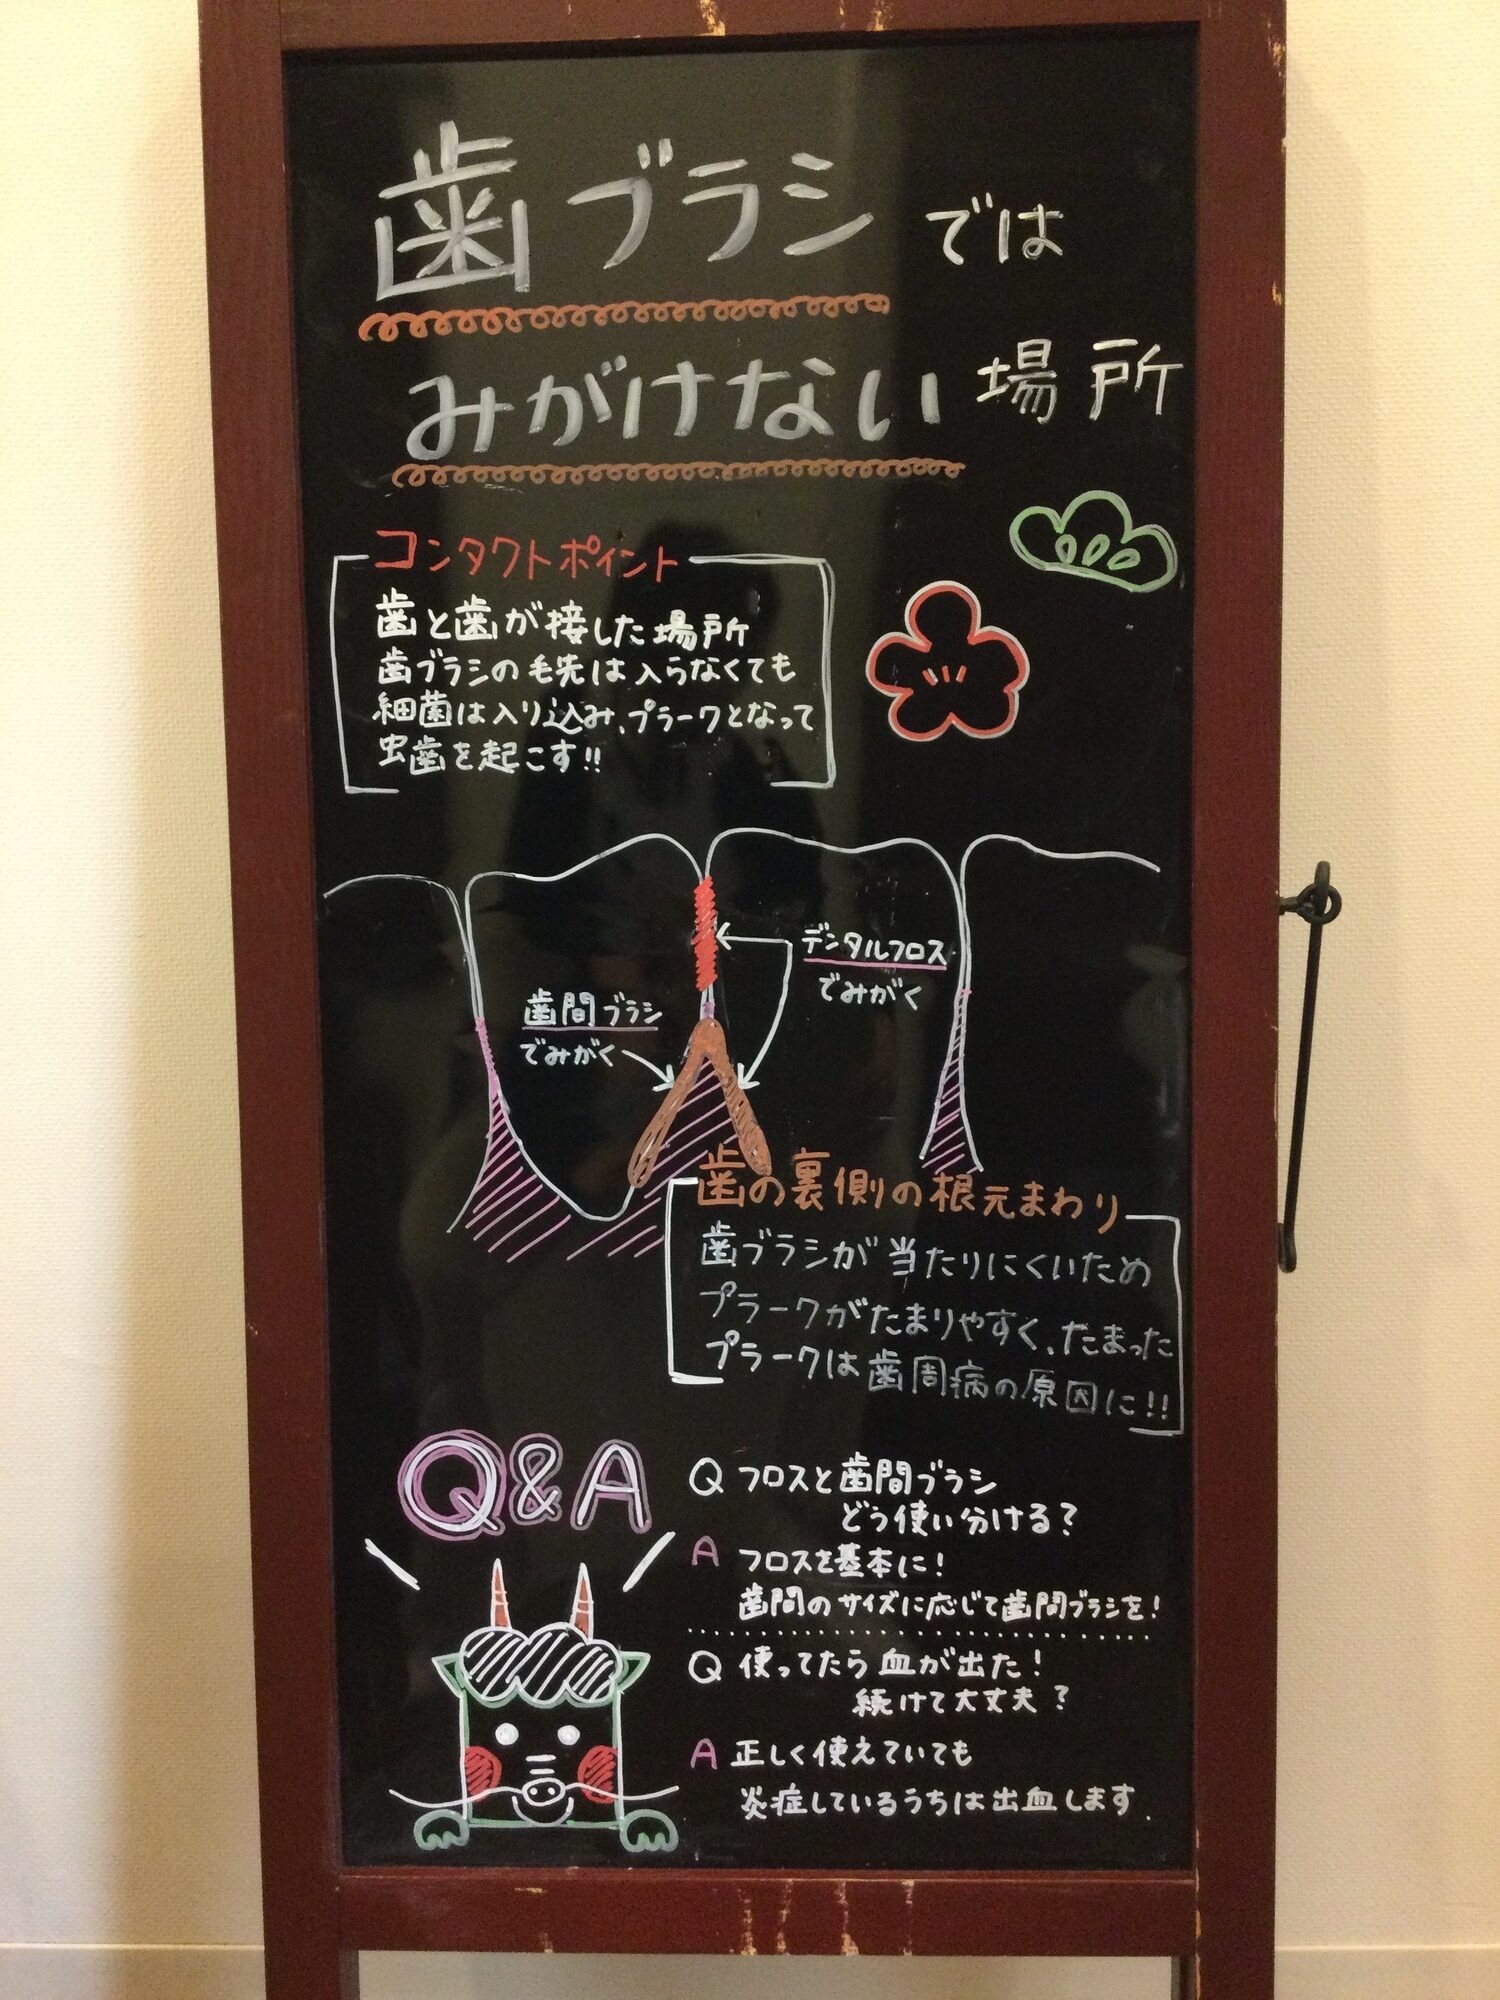 歯ブラシでは
みがけない場所
コンタクトポイント
歯と歯が接した場所
歯ブラシの毛先は入らなくても
細菌は入り込み、プラークとなって
虫歯を起こす!!
デンタルフロス
でみがく
歯間ブラシ
でみがく
歯の裏側の根元まわり
歯ブラシが当たりにくいため
プラークがたまりやすく、たまった
プラークは歯周病の原因に!!
Q&A
Q フロスと歯間ブラシ
どう使い分ける?
A フロスを基本に!
歯間のサイズに応じて歯間ブラシを!
Q 使ってたら血が出た!
続けて大丈夫?
A 正しく使えていても
炎症しているうちは出血します.